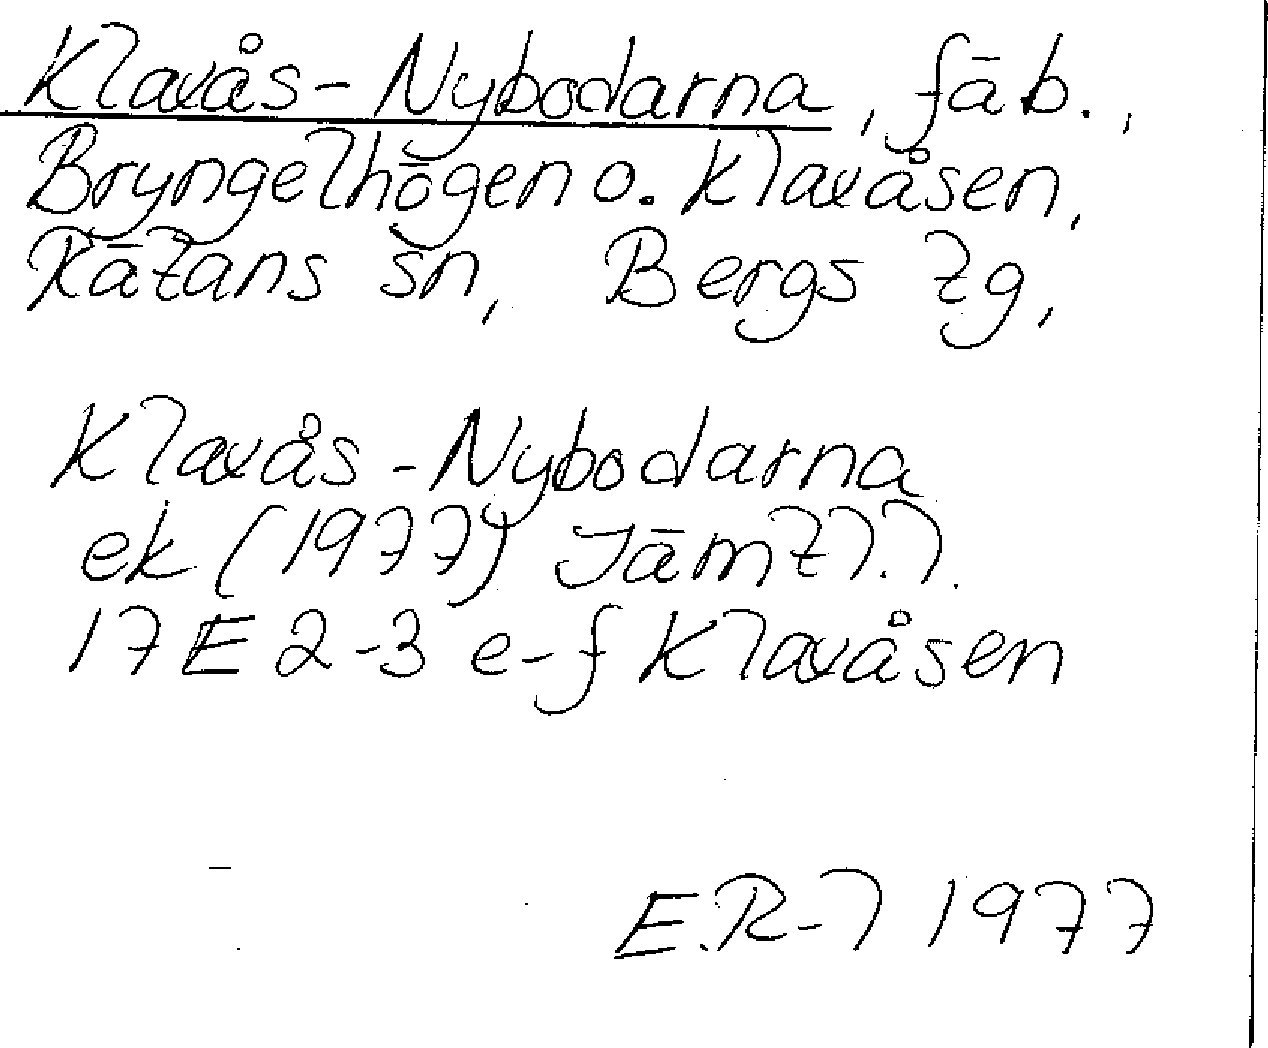 Klaxås-Nybodarna, fäb.,
Bryngelhögen o. Klaxåsen,
Rätans sn, Bergs tg,
Klaxås-Nybodarna
ek (1977) Jämtl.l.
17E 2-3 e-f Klaxåsen
E.R-l 1977